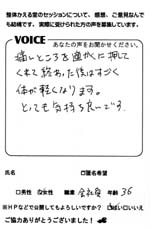 整体かえる堂のセッションについて、感想、ご意見なんで
も結構です。実際に受けられた方の声を募集しています。
VOICE
あなたの声をお聞かせください。
痛いところを適かくに押して
くれて終わった後はすごく
体が軽くなります。
とっても気持ち良いです。
氏名 □匿名希望
□男性 □女性 職業 会社員 年齢 36
※HPなどで公開してもよろしいですか? □はい □いいえ
ご協力ありがとうございました!